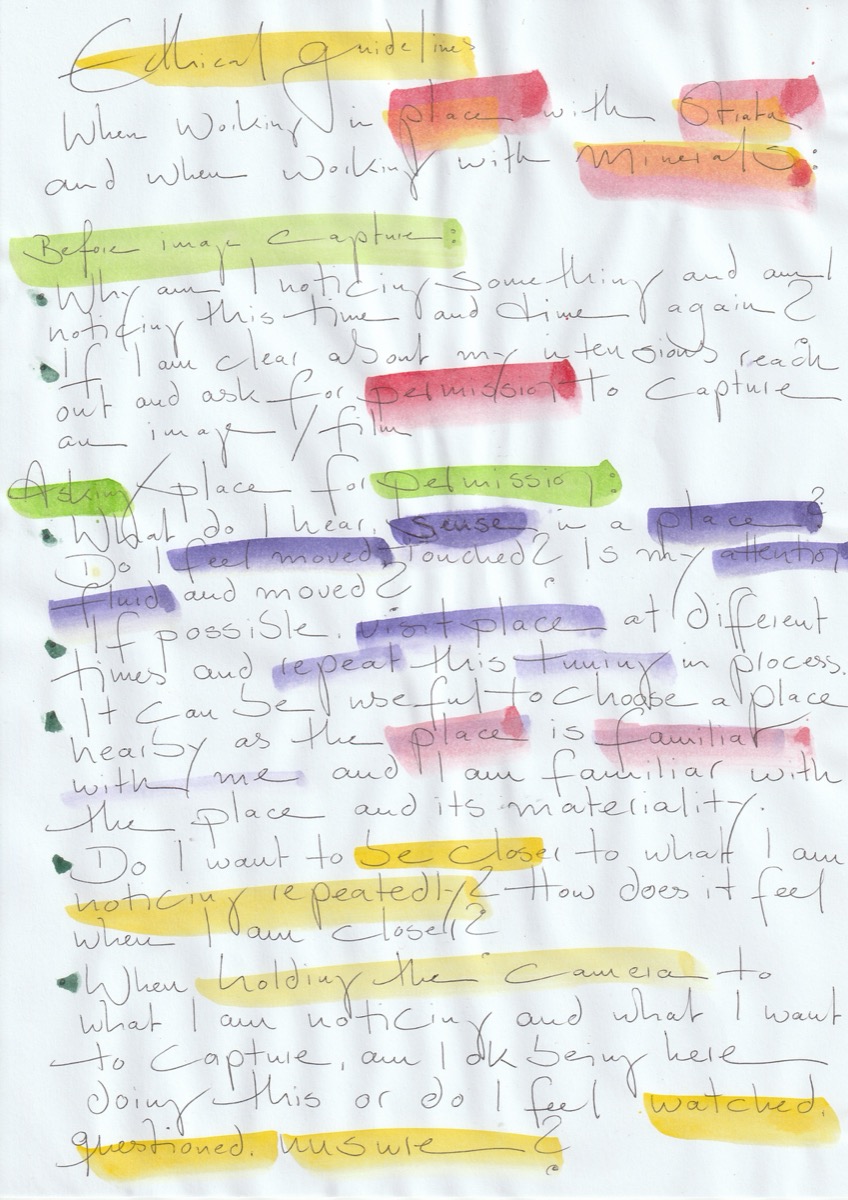 Ethical guidelines
When working in place with Strata
and when working with minerals:
Before image capture:
• Why am I noticing something and am I
noticing this time and time again?
• If I am clear about my intensions reach
out and ask for permission to capture
an image/film
Asking place for permission:
• What do I hear, sense in a place?
Do I feel moved, touched? Is my attention
fluid and moved?
• If possible, visit place at different
times and repeat this tuning in process.
• It can be useful to choose a place
nearby as the place is familiar
with me and I am familiar with
the place and its materiality.
• Do I want to be closer to what I am
noticing repeatedly? How does it feel
when I am closer?
• When holding the camera to
what I am noticing and what I want
to capture, am I ok being here
doing this or do I feel watched,
questioned, unsure?